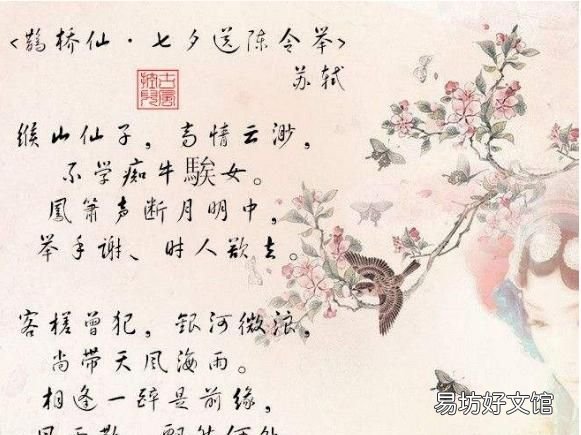 <鹊桥仙·七夕送陈令举>
苏轼
缑山仙子，高情云渺，
不学痴牛騃女。
鳳箫声断月明中，
举手谢、时人欲去。
客槎曾犯，银河微浪，
尚带天风海雨。
相逢一醉是前缘，
易坊好文馆